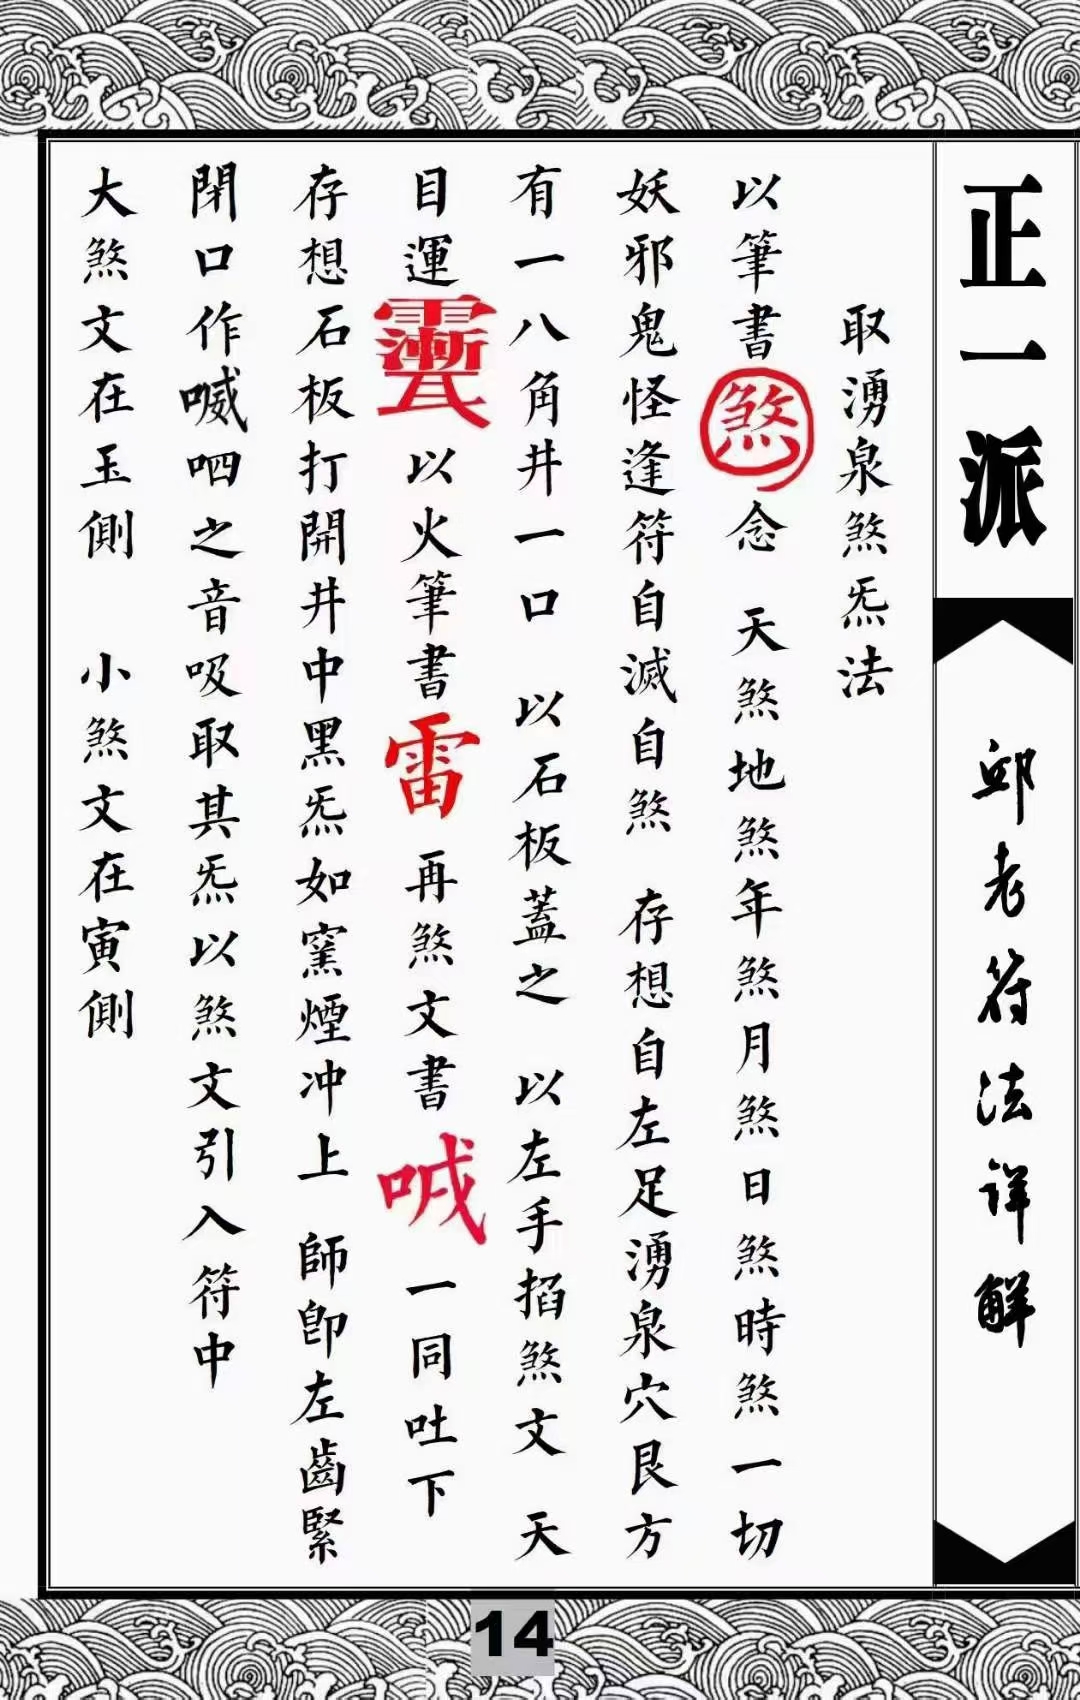 正一派
邱老符法详解
取湧泉煞炁法
以筆書煞念 天煞地煞年煞月煞日煞時煞一切
妖邪鬼怪逢符自滅自煞 存想自左足湧泉穴艮方
有一八角井一口 以石板蓋之 以左手掐煞文 天
目運 以火筆書雷再煞文書喊一同吐下
存想石板打開井中黑炁如窯煙冲上 師卽左齒緊
閉口作喊呬之音吸取其炁以煞文引入符中
大煞文在玉側 小煞文在寅側
14